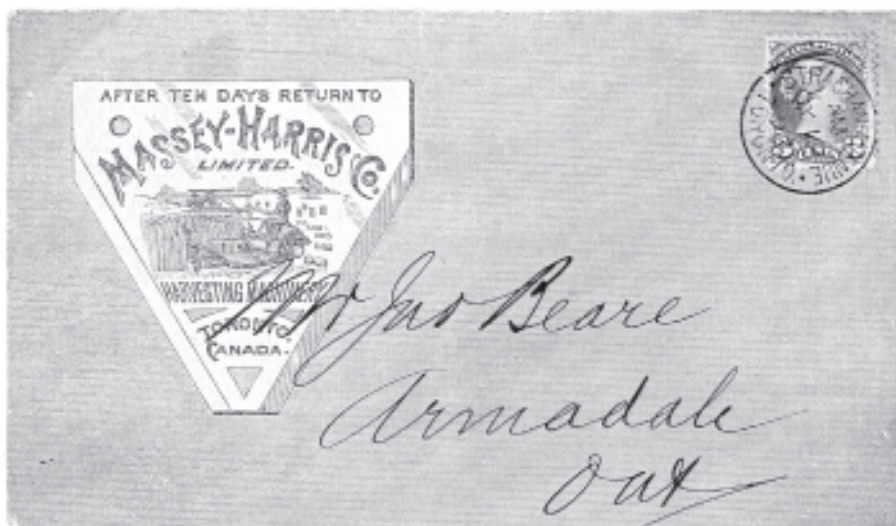 AFTER TEN DAYS RETURN TO
MASSEY-HARRIS CO.
LIMITED.
HARVESTING MACHINERY
TORONTO,
CANADA.
Mr Jno Beare
Armadale
Ont